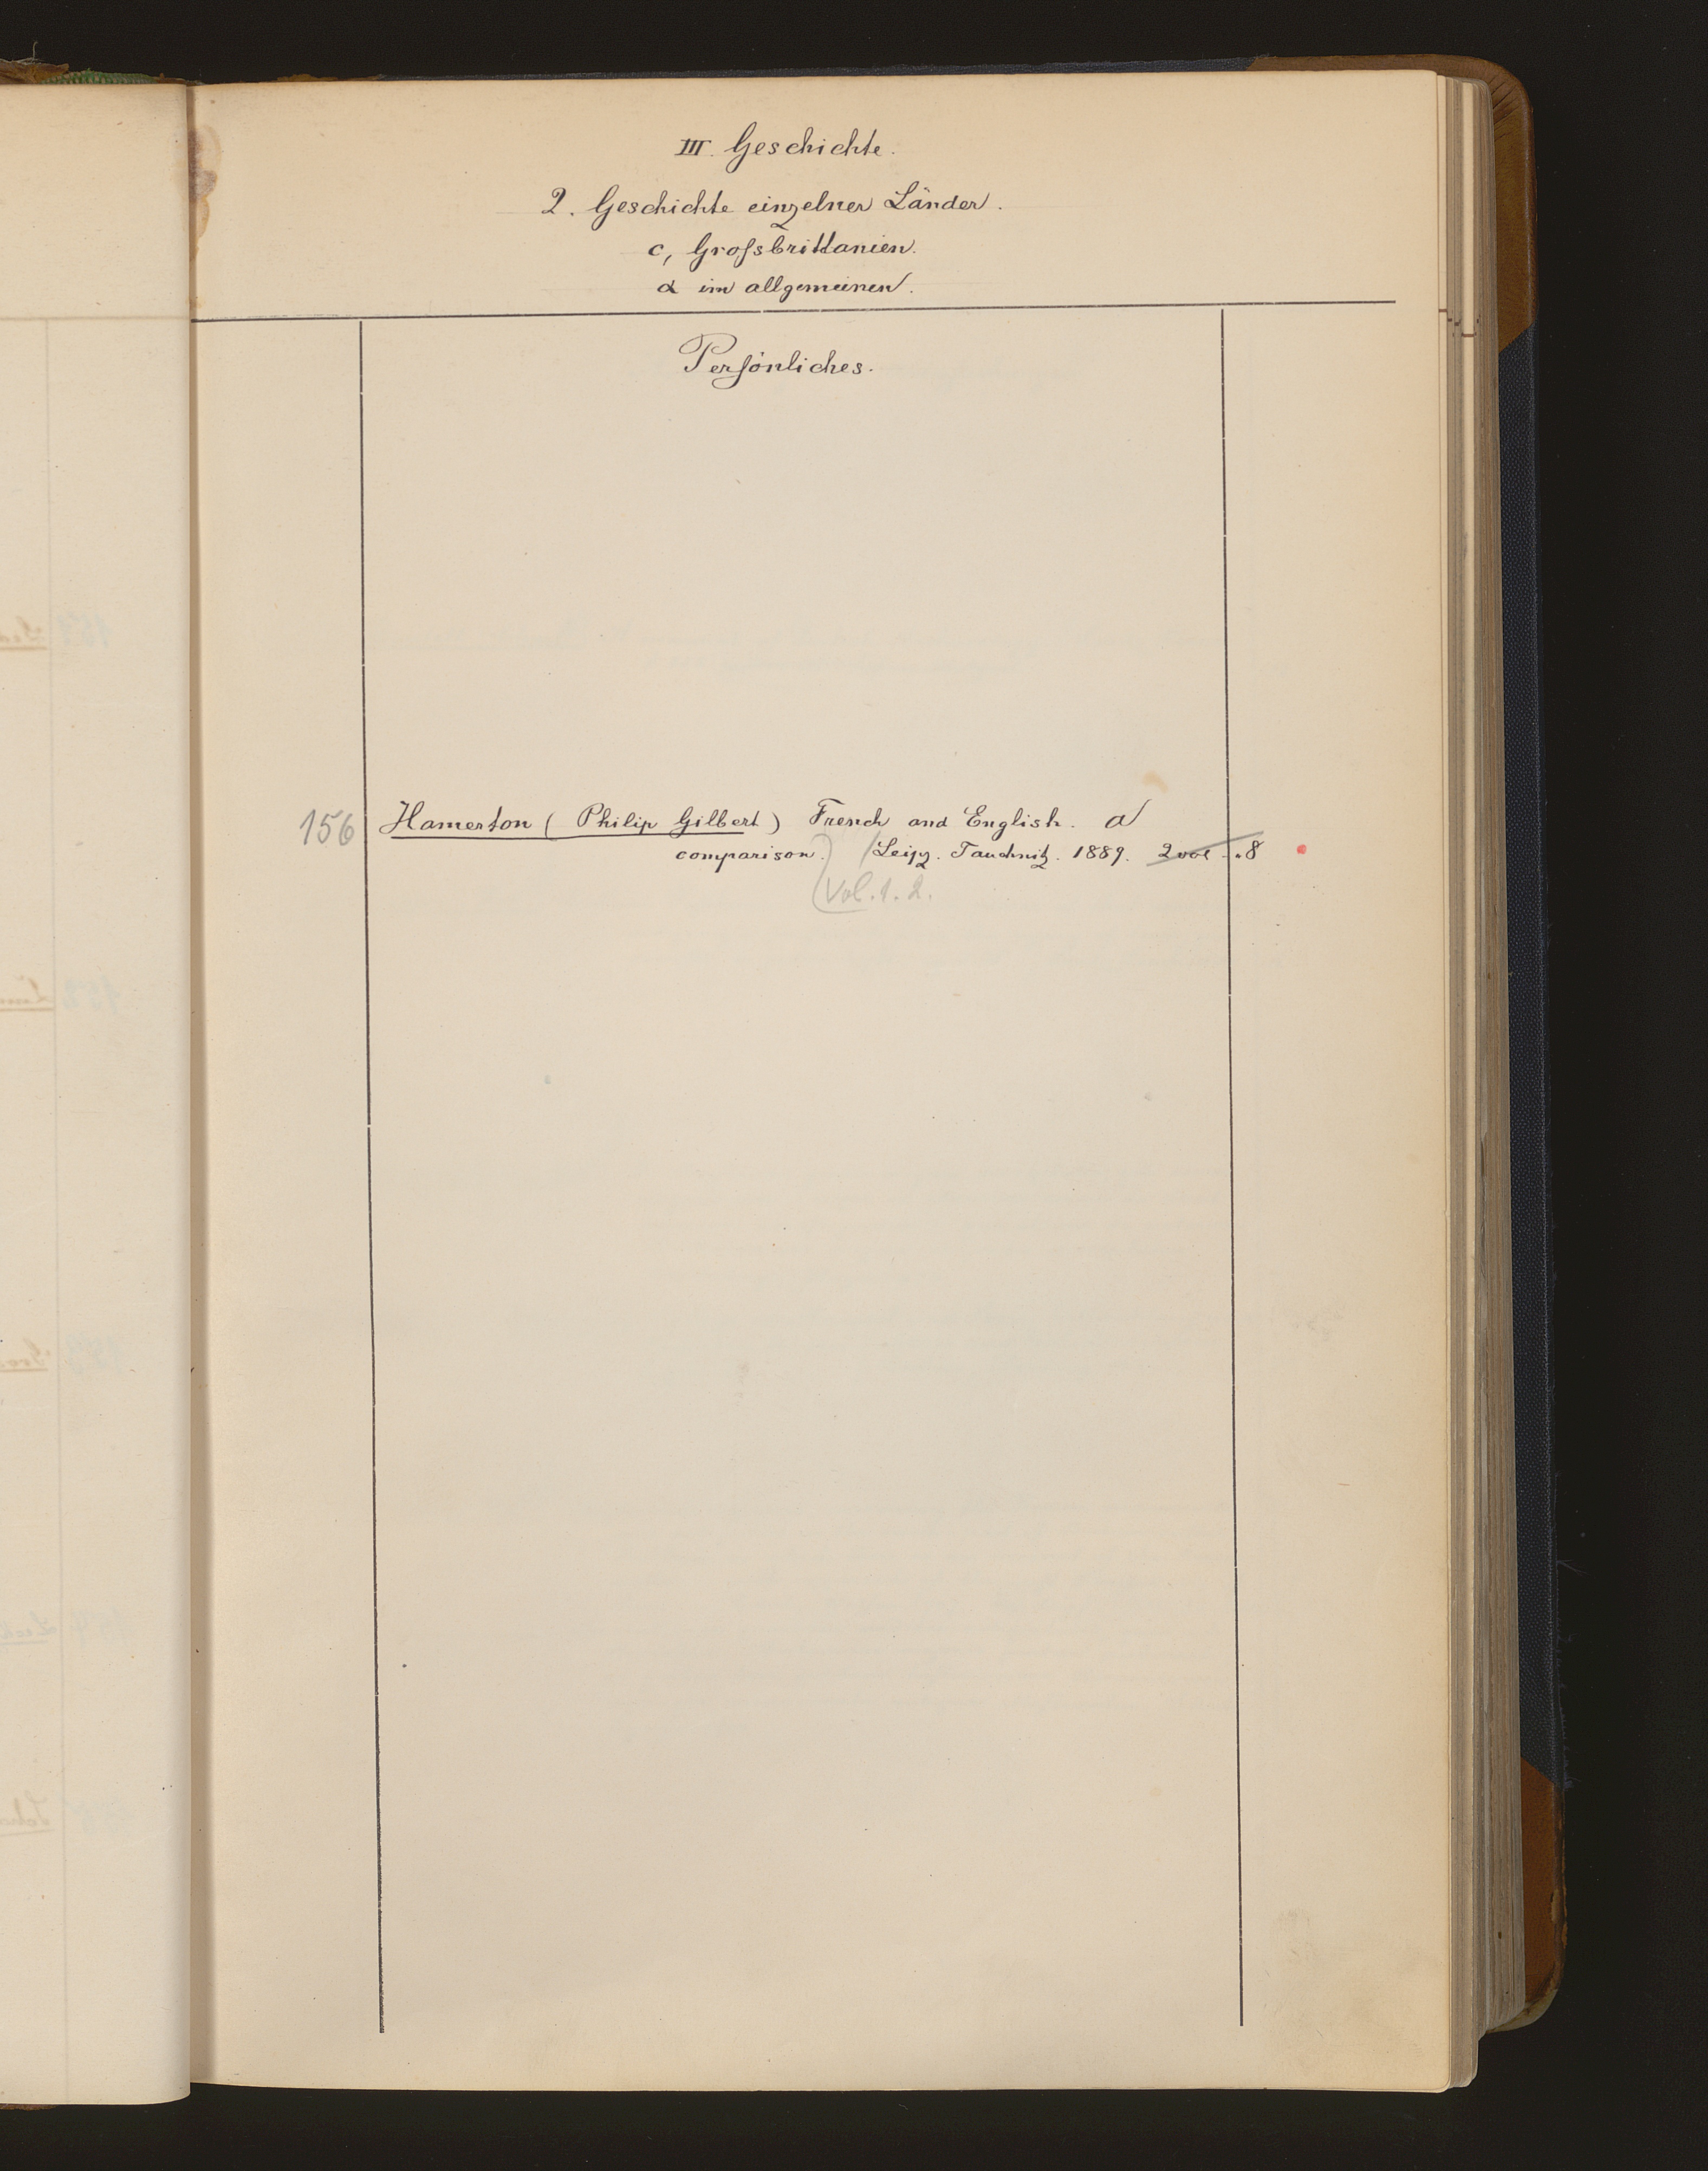 III. Geschichte.
2. Geschichte einzelner Länder.
c, Grofsbrittanien.
α im allgemeinen.
Persönliches.
156 Hamerton (Philip Gilbert) French and English. a
comparison. Leipz. Tauchnitz. 1889. 2 vol. 8
Vol. 1. 2.